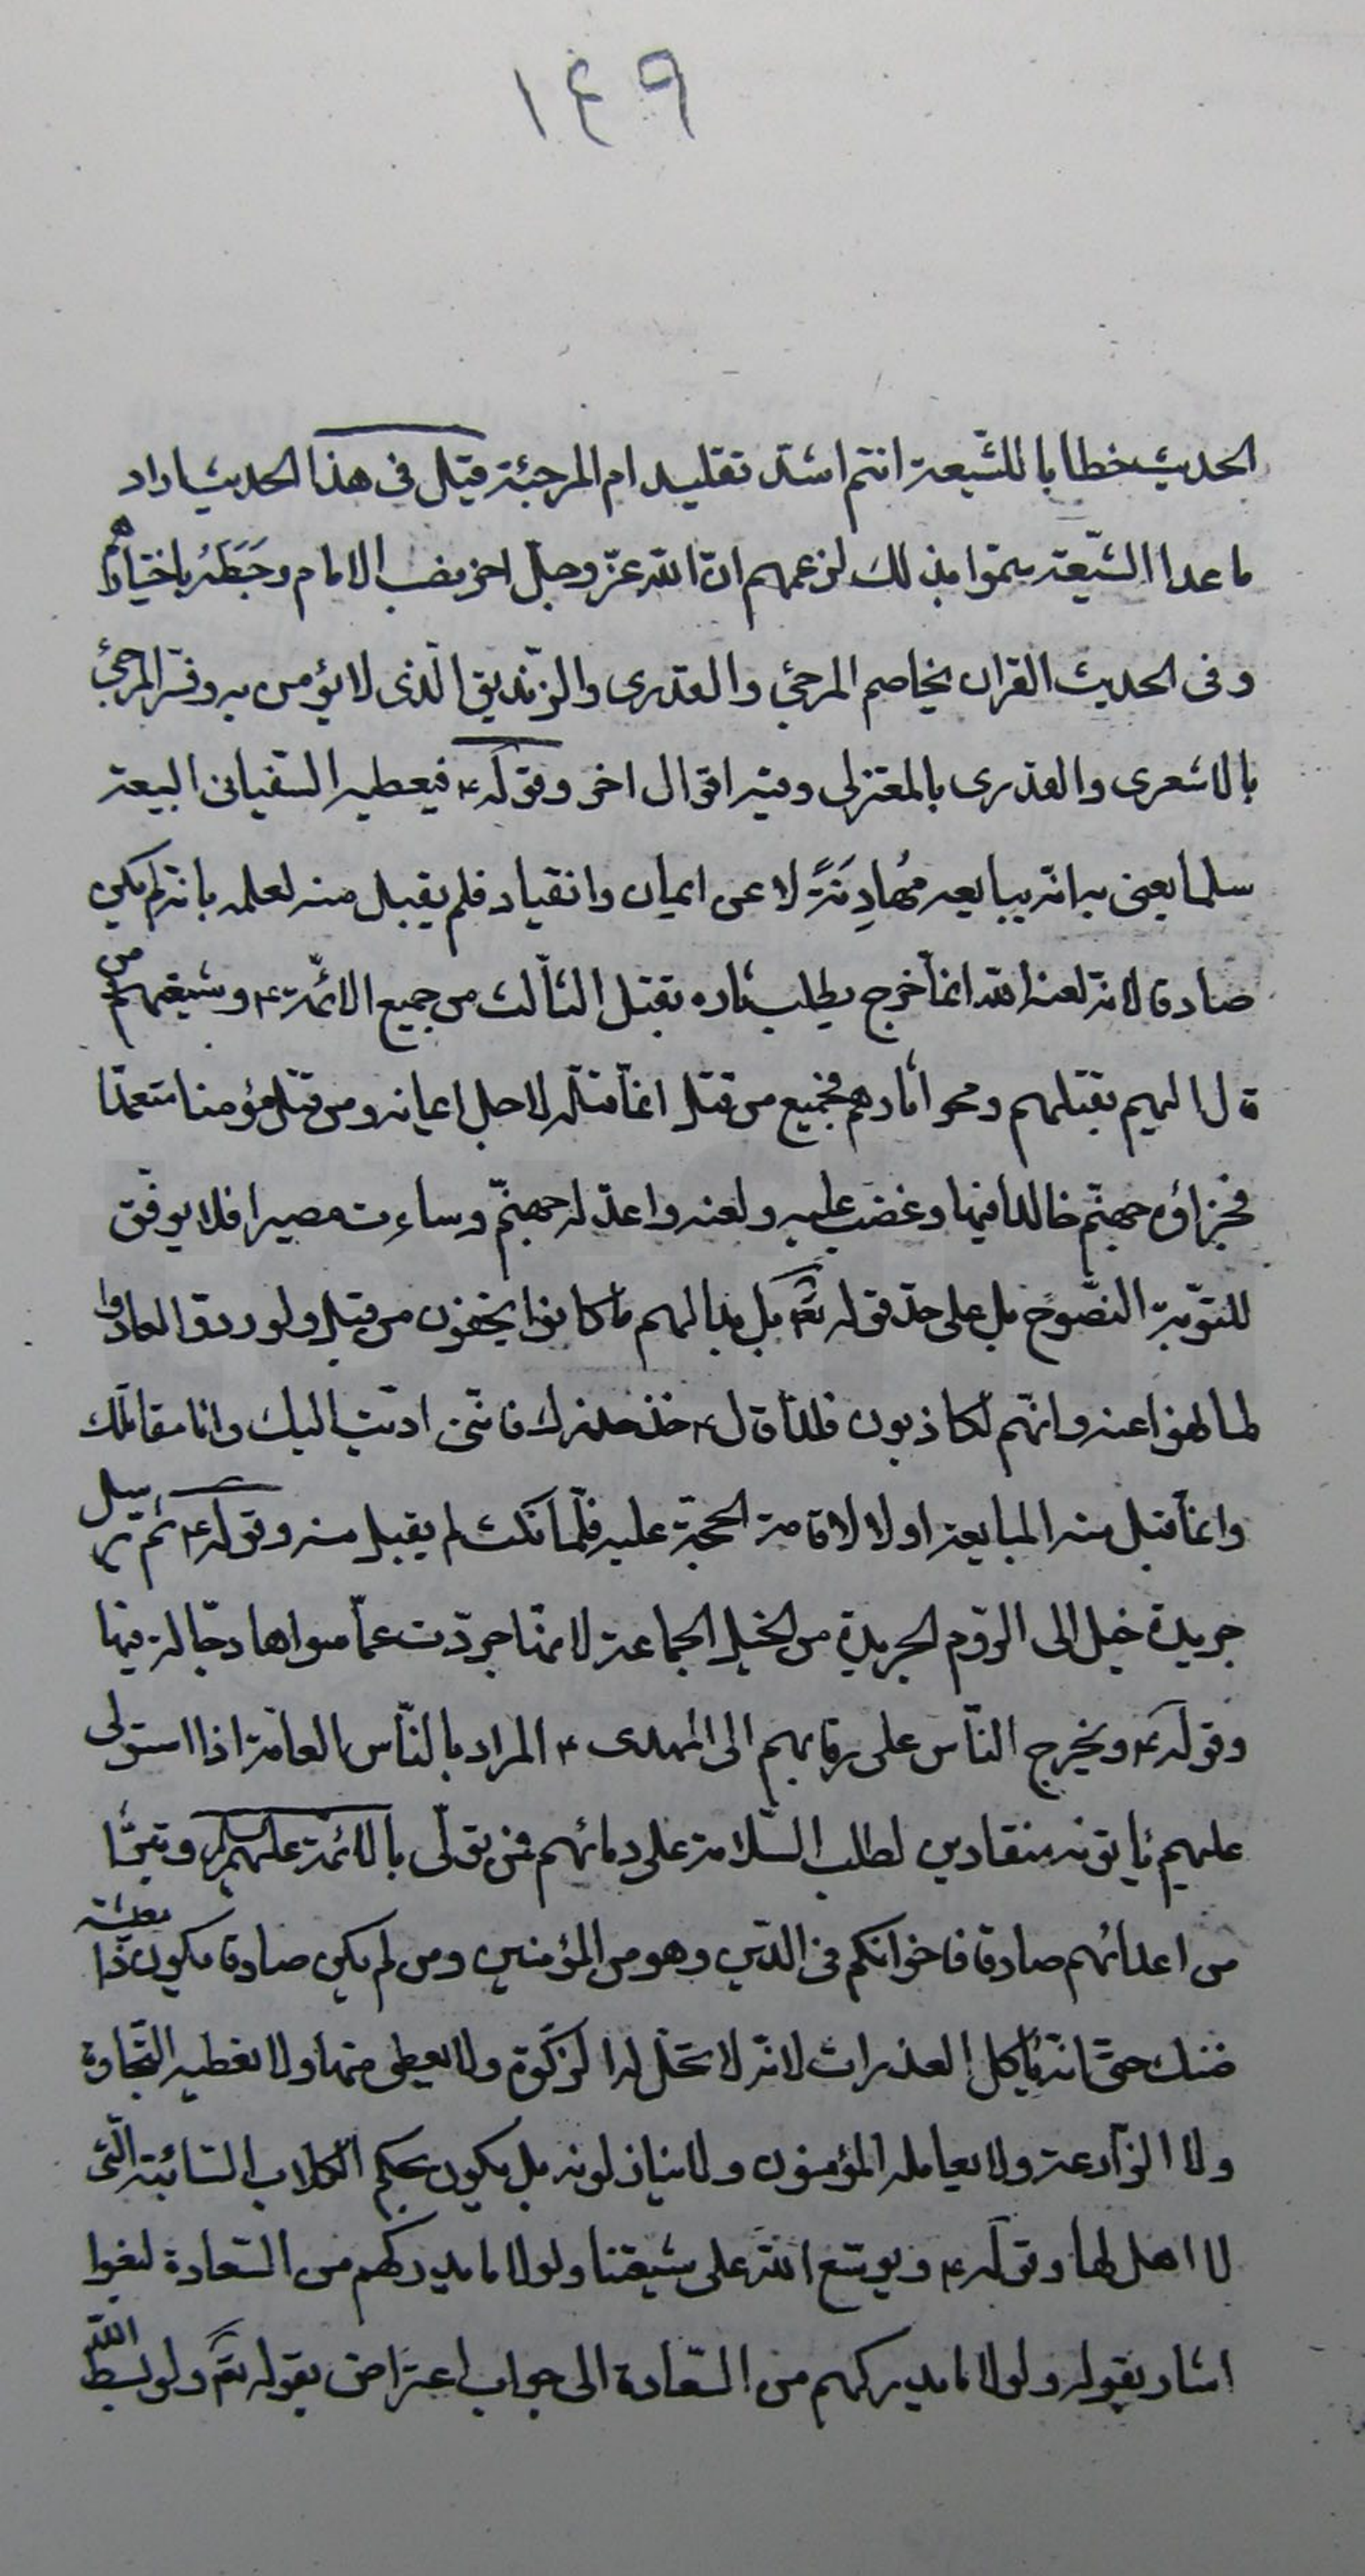 ١٤٩
الحديث خطابا للشّيعة انتم اشدّ تقليدا ام المرجئة قيل فى هذا الحديث اراد
ما عدا الشّيعة سمّوا بذلك لزعمهم انّ اللّه عزّ وجلّ اخر نصب الامام وجَعَلَهُ باختيارهم
وفى الحديث القرآن يخاصم المرجئ والقدرى والزّنديق الّذى لا يؤمن به وفسّر المرجئ
بالاشعرى والقدرى بالمعتزلى وفيه اقوال اخر وقوله ۴ فيعطيه السّفيانى البيعة
سلما يعنى به انّه يبايعه مُهَادِنَةً لا عن ايمان وانقياد فلم يقبل منه لعلمه بانّه لم يكن
صادقا لانّه لعنه اللّه انّما خرج يطلب ثاره بقتل الثالث من جميع الائمّة ۴ وشيعتهم من
قال اليهم بقتلهم ومحو آثارهم فجميع من قتل انّما قتله لاجل ايمانه ومن قتل مؤمنا متعمّدا
فجزاؤه جهنّم خالدا فيها وغضب عليه ولعنه واعدّ له جهنّم وساءت مصيرا فلا يوفّق
للتّوبة النّصوح بل على حدّ قوله تع بل بدا لهم ما كانوا يخفون من قبل ولو ردّوا لعادوا
لما نهوا عنه وانّهم لكاذبون فلذا قال ۴ خذ حذرك فانّنى ادّيت اليك وانا مقاتلك
وانّما قبل منه المبايعة اولا لاقامة الحجّة عليه فلمّا نكث لم يقبل منه وقوله ۴ ثم يرسل
جريدة خيل الى الرّوم الجريدة من الخيل الجماعة لانّها جرّدت عمّا سواها رجّالة فيها
وقوله ۴ ويخرج النّاس على رقابهم الى المهدى ۴ المراد بالنّاس العامّة اذا استولى
عليهم يأتونه منقادين لطلب السّلامة على دمائهم فمن تولّى بالائمّة عليهم السلام وتبرّأ
من اعدائهم صادقا فاخوانكم فى الدّين وهو من المؤمنين ومن لم يكن صادقا يكون ذا معيشة
ضنك حتى انه يأكل العذرات لانّه لا تحلّ له الزكوة ولا يعطى منها ولا تغطيه التّجارة
ولا الزّراعة ولا يعامله المؤمنون ولا يباذلونه بل يكون بحكم الكلاب السّائبة الّتى
لا اهل لها وقوله ۴ ويوسّع اللّه على شيعتنا ولولا ما يدركهم من السّعادة لبغوا
اشار بقوله ولولا ما يدركهم من السّعادة الى جواب اعتراض بقوله تع ولو بسط اللّه